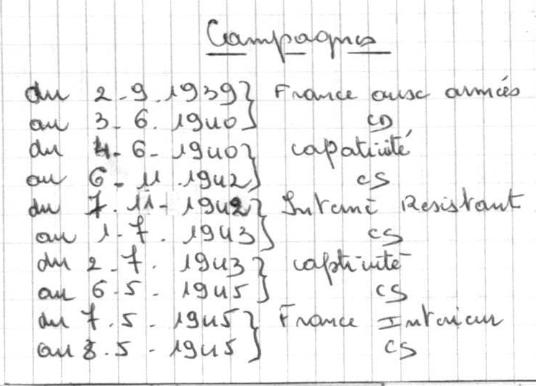 Campagnes
du 2-9-1939 } France aux armées
au 3-6-1940 } CD
du 4-6-1940 } capativité
au 6-11-1942 } CS
du 7-11-1942 } Interné Resistant
au 1-7-1943 } CS
du 2-7-1943 } captivité
au 6-5-1945 } CS
du 7-5-1945 } France Interieur
au 8-5-1945 } CS